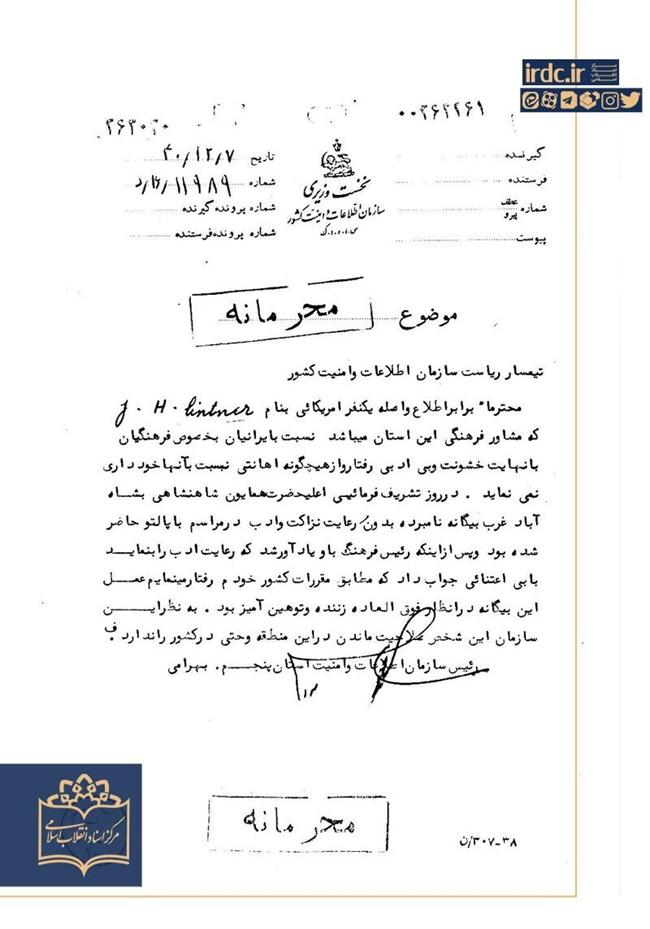 irdc.ir
۰۰۳۶۳۲۶۹
گیرنده
فرستنده
شماره عطف پیرو
پیوست
نخست وزیری
سازمان اطلاعات و امنیت کشور
س.ا.و.ا.ک
تاریخ ۴۰/۱۲/۷
شماره ۱۱۹۸۹
شماره پرونده گیرنده
شماره پرونده فرستنده
موضوع
محرمانه
تیمسار ریاست سازمان اطلاعات وامنیت کشور
محترما" برابر اطلاع واصله یکنفر امریکائی بنام J. H. Lintner
که مشاور فرهنگی این استان میباشد نسبت بایرانیان بخصوص فرهنگیان
بانهایت خشونت وبی ادبی رفتار وازهیچگونه اهانتی نسبت بآنها خود داری
نمی نماید . درروز تشریف فرمائیی اعلیحضرت همایون شاهنشاهی بشاه
آباد غرب بیگانه نامبرده بدون رعایت نزاکت وادب درمراسم باپالتو حاضر
شده بود وپس ازاینکه رئیس فرهنگ باو یادآورشد که رعایت ادب رابنماید
بابی اعتنائی جواب داد که مطابق مقررات کشور خودم رفتارمینمایم عمل
این بیگانه درانظار فوق العاده زننده وتوهین آمیز بود . به نظر این
سازمان این شخص صلاحیت ماندن دراین منطقه وحتی درکشور راندارد
رئیس سازمان اطلاعات وامنیت استان پنجم . بهرامی
محرمانه
۳۰۷-۳۸/ن
مرکز اسناد انقلاب اسلامی